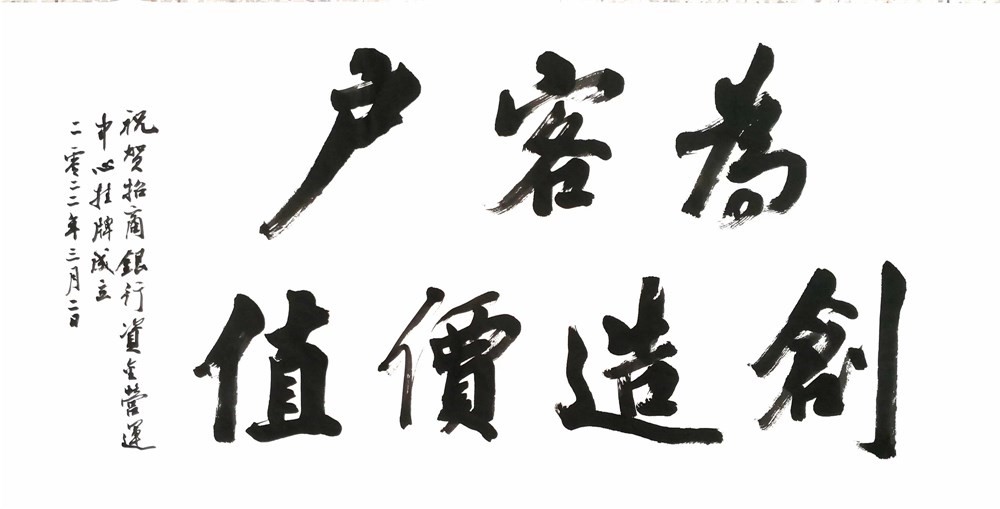 為客户
創造價值
祝贺招商銀行資金營運
中心挂牌成立
二零二二年三月二日